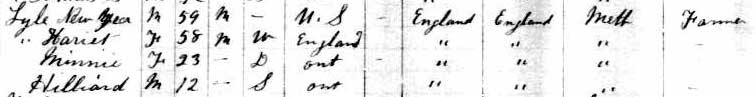 Lyle New Year M 59 M - U.S - England England Meth Farmer
" Hariet F 58 M W England " " " -
Minnie F 23 - D Ont - " " "
Hilliard M 12 - S Ont " " " -